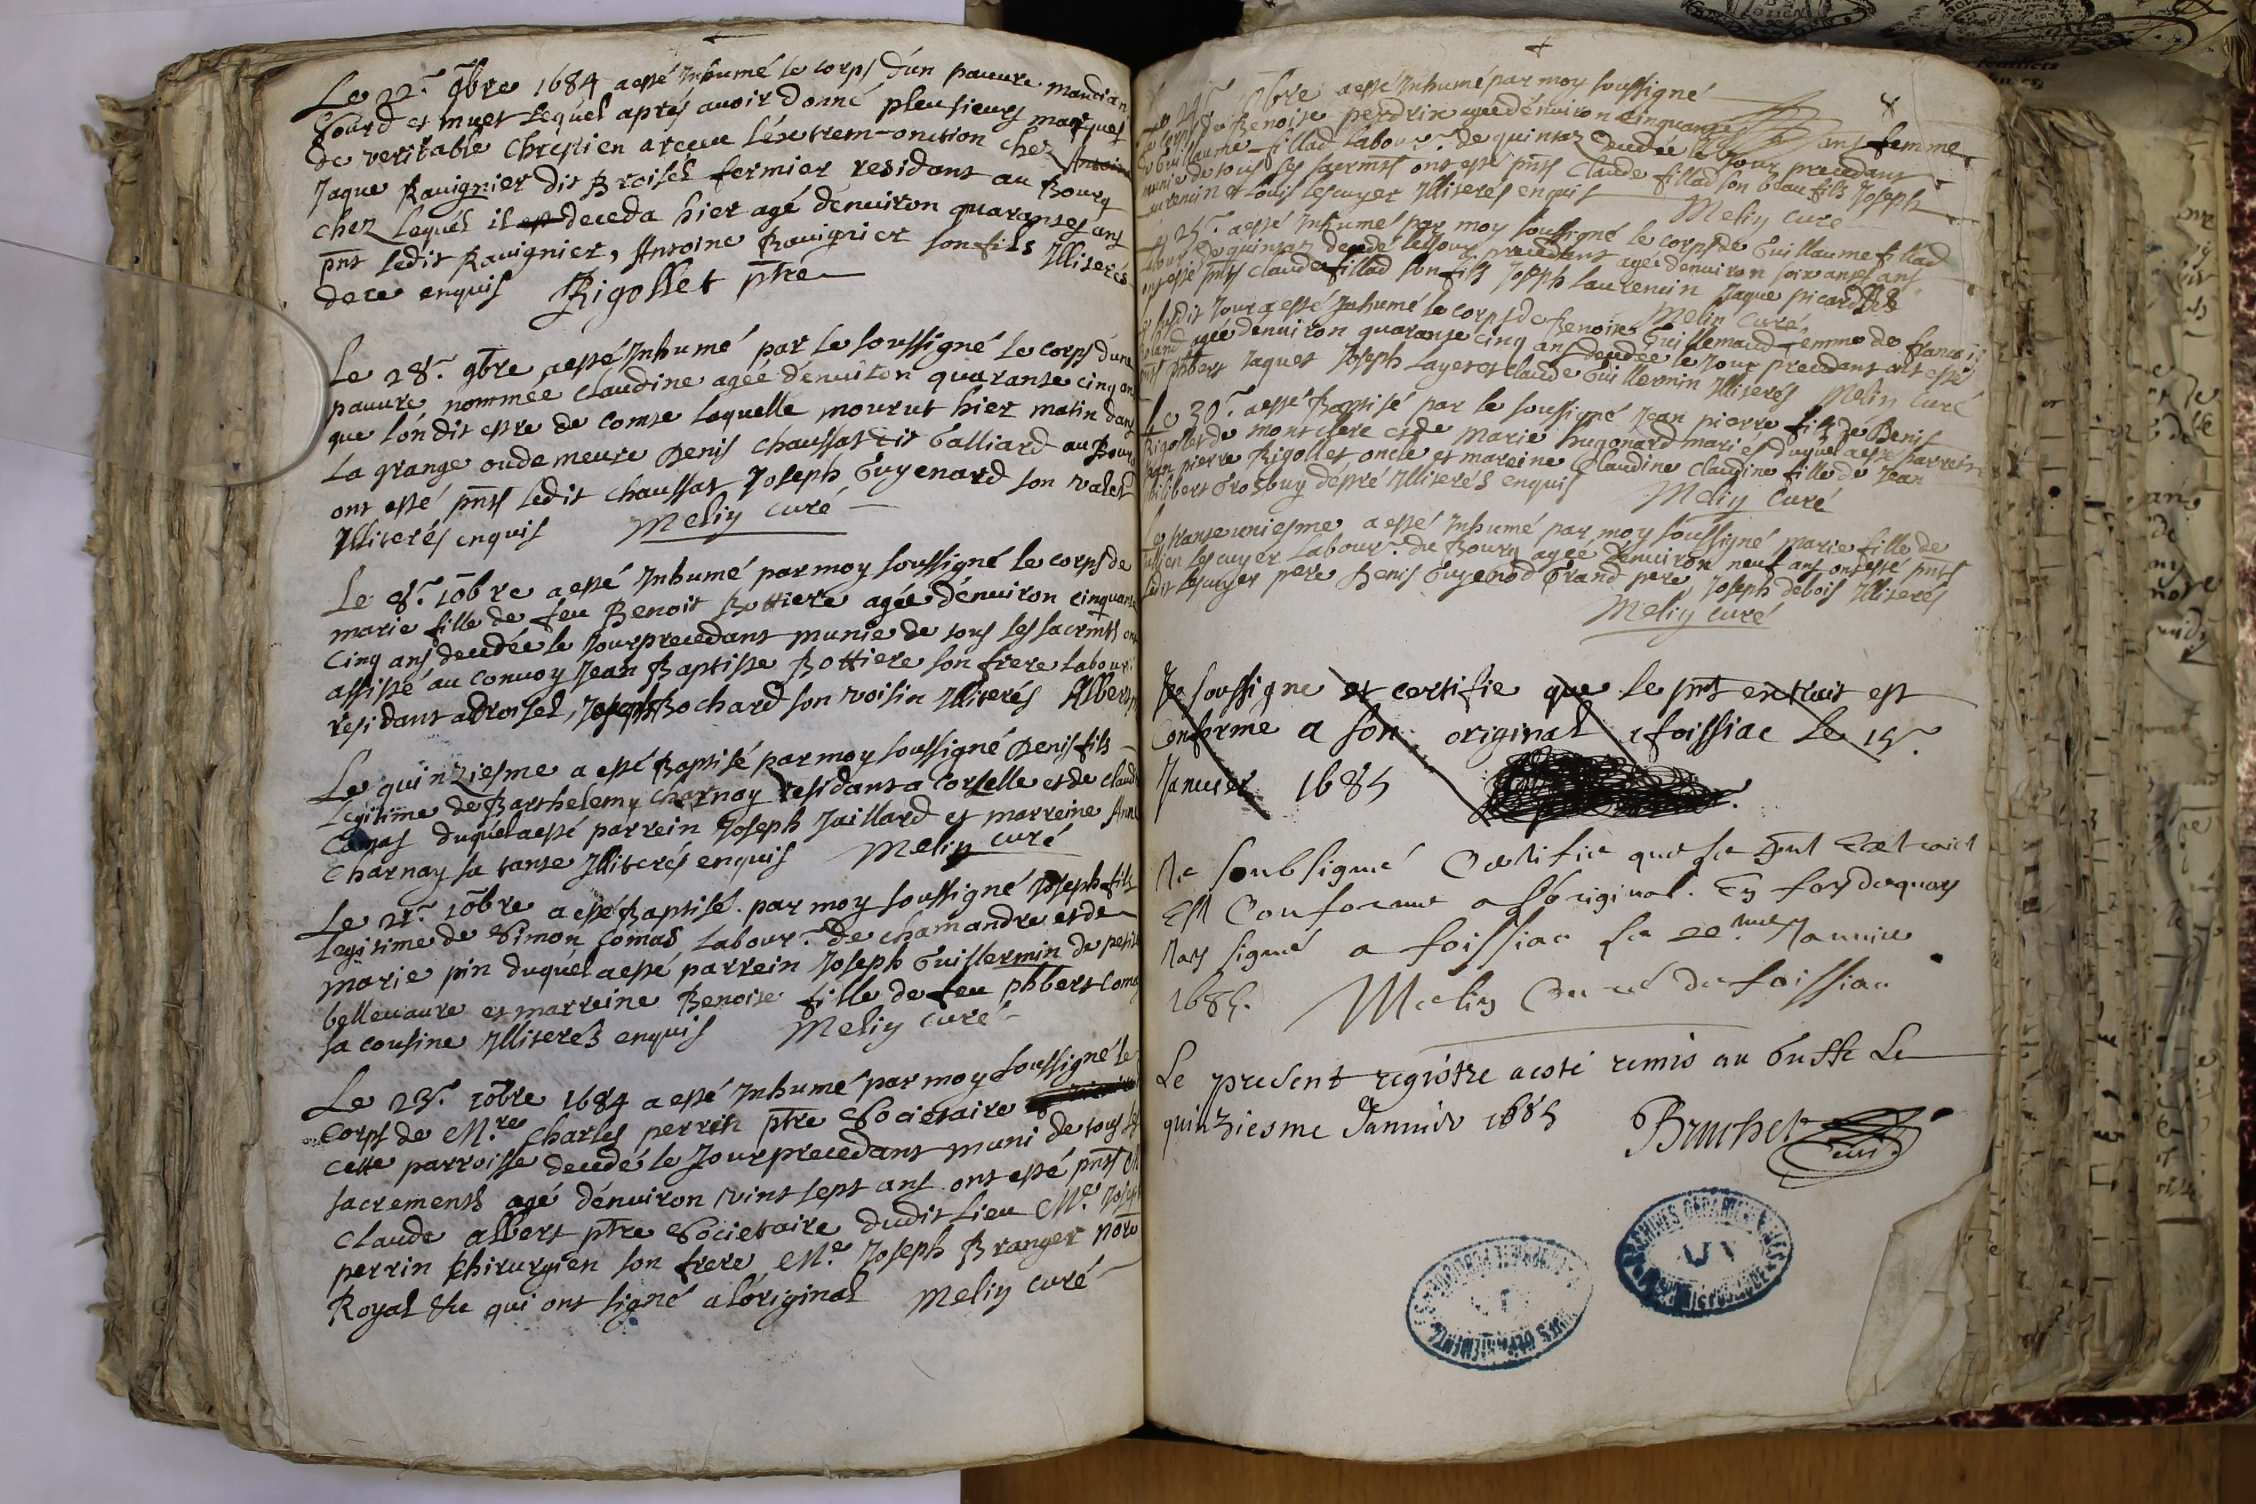 Le 22.e 9bre 1684 a esté Inhumé le corps d'un pauure mandian
sourd et muet lequel aprés auoir donné plusieurs marques
de veritable chrestien a receu l'éxtrem-onction chez
Jaque Rauignier dit Broiset fermier residant au Bourg
chez lequel il est deceda hier agé denuiron quarantes ans
pnt ledit Rauignier, Antoine Rauignier son fils Illiterés
de ce enquis Rigollet ptre
Le 28.e 9bre a esté Inhumé par le soussigné le corps dune
pauure nommée Claudine agée d'enuiron quarante cinq ans
que l'on dit estre de comte laquelle mourut hier matin dans
la grange ou demeure Denis Chaussat dit Galliard au Bourg
ont esté pnts ledit Chaussat Joseph Guyenard son valet
Illiterés enquis Meliy curé
Le 8.e 10bre a esté Inhumé par moy soussigné le corps de
marie fille de feu Benoit Bottiere agée d'enuiron cinquante
cinq ans decedée le Jour precedant munie de tous les sacrmts ont
assisté au conuoy Jean Baptiste Bottiere son frere labour.r
residant a Broiset, Joseph Bochard son voisin Illiterés Albert
Le quinziesme a esté Baptisé par moy soussigné Denis fils
legitime de Barthelemy Charnay residant a Corselle et de claud
Comas duquel a esté parrein Joseph Jaillard et marreine Anne
Charnay sa tante Illiterés enquis Meliy curé
Le 21.e 10bre a esté Baptisé par moy soussigné Joseph fils
legitime de Simon Comas labour.r de chamandre et de
marie pin duquel a esté parrein Joseph Guillermin de petit
belleuaure et marreine Benoite fille de feu phbert Comas
sa cousine Illiterés enquis Meliy curé
Le 23.e 10bre 1684 a esté Inhumé par moy soussigné le
corps de M.re Charles perrin ptre Societaire
cette parroisse decedé le Jour precedant muni de tous les
sacrements agé d'enuiron vint sept ans ont esté pnts M
Claude albert ptre Societaire dudit lieu M.e Joseph
perrin Chirurgien son frere M.e Joseph Branger notre
Royal &c qui ont signé a l'original Meliy curé
Le 24.e 10bre a esté Inhumé par moy soussigné
le corps de Benoite perdrix agée d'énuiron cinquante ans femme
de Guillaume fillad labour.r de quintaz decedée le Jour precedant
munie de tous les sacrmts ont esté pnts Claude fillad son beau fils Joseph
laurencin et Louis lescuyer Illiterés enquis Meliy curé
Le 25.e a esté Inhumé par moy soussigné le corps de Guillaume fillad
labour.r de quintaz decedé le Jour precedant agé denuiron soixantes ans
ont esté pnts Claude fillad son fils Joseph laurencin Jaque picard
Meliy curé
Le susdit Jour a esté Inhumé le corps de Benoite Guillemaud femme de francois
agée denuiron quarante cinq ans decedée le Jour precedant ont esté
pnts phbert Jaquet Joseph Layet et Claude Guillermin Illiterés Meliy curé
Le 30.e a esté Baptisé par le soussigné Jean pierre fils de Denis
Rigollet de montclere et de Marie hugonard mariés duquel a esté parrein
Jean pierre Rigollet oncle et mareine Claudine Claudine fille de Jean
philibert Grosbuy dépré Illiterés enquis Meliy curé
Le trante uniesme a esté Inhumé par moy soussigné marie fille de
lescuyer labour.r du Bourg agée denuiron neuf ans ont esté pnts
ledit lescuyer pere Denis Guyenod Grand pere Joseph debois Illiterés
Meliy curé
Je soussigne et certifie que le pnt extrait est
conforme a son original a foissiac le 15.e
Januier 1685
Je soubsigné Certifie que le pnt Extraict
Est Conforme a l'original. En foy de quoy
Jay signé a foissiac le 22.me Januier
1685. Meliy Curé de foissiac
Le present registre a coté remis au Greffe Le
quinziesme Januier 1685 Bruchet